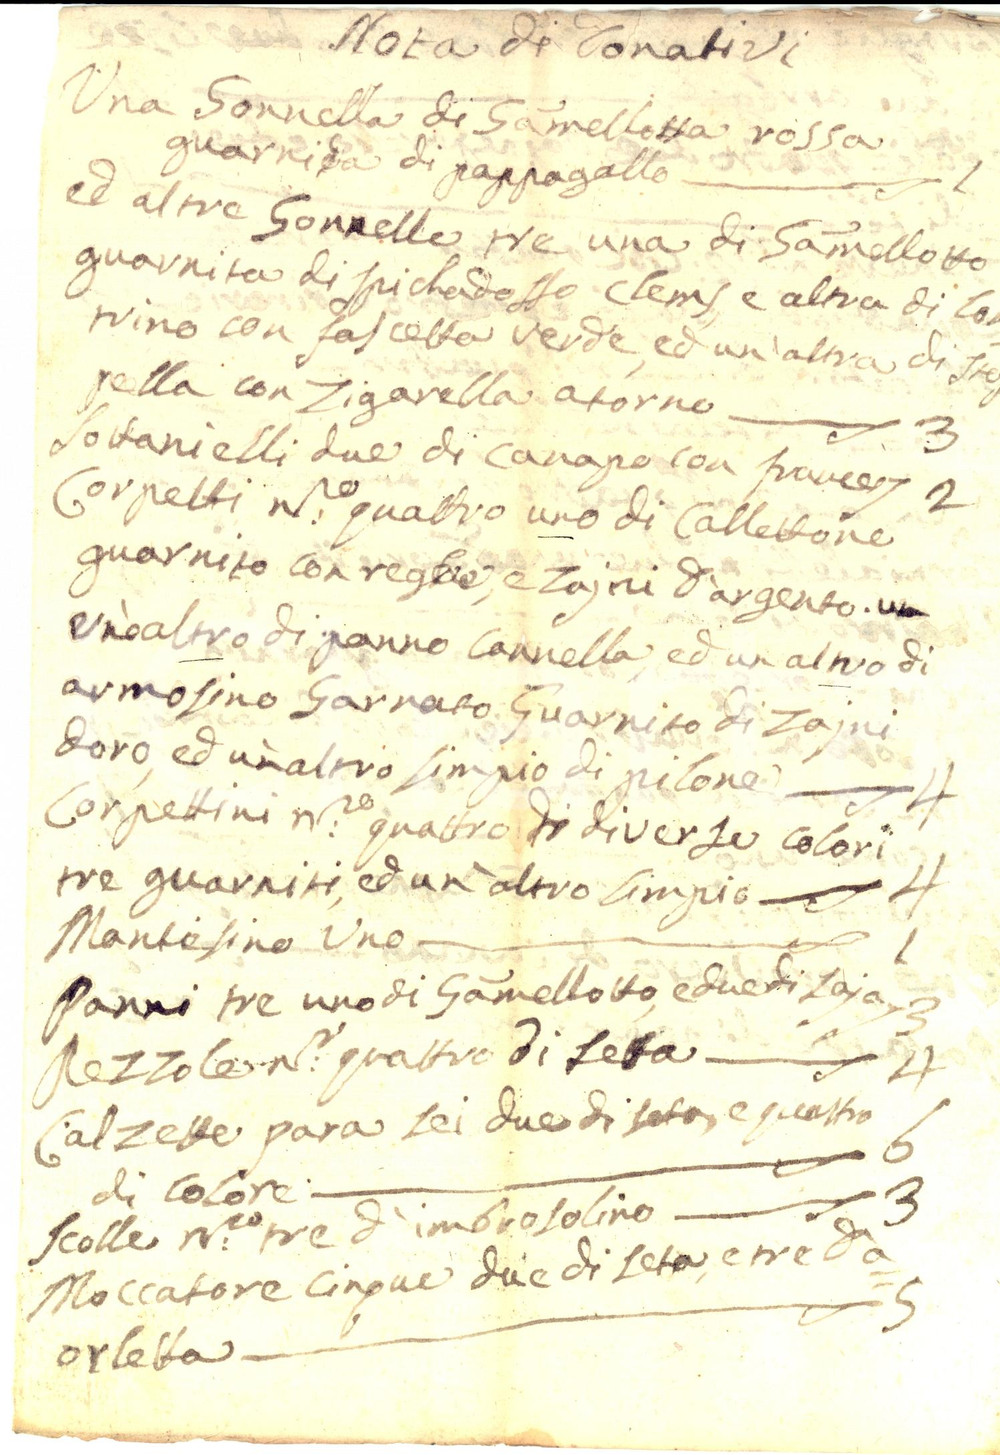 Nota di Donativi
Una Gonnella di Gamellotto rossa
guarnita di pappagallo 1
ed altre Gonnelle tre una di Gamellotto
guarnita di spichadosso e altra di
trino con fascetta verde, ed un'altra di
pella con Zigarella atorno 3
Sottanielli due di canapo con 2
Corpetti n.ro quattro uno di Callettone
guarnito con reghe, e Zajni d'argento.
un'altro di panno Cannella, ed un altro di
armosino Garnato Guarnito di Zajni
d'oro, ed un'altro simpio di pilone 4
Corpettini n.ro quattro di diverse colori
tre guarniti, ed un'altro simpio 4
Mantesino Uno 1
Panni tre uno di Gamellotto, e due di Saja 3
Pezzole n.r quattro di Seta 4
Calzette para sei due di seta, e quattro
di colore 6
Scolle n.ro tre d'imbrosolino 3
Moccatore cinque due di seta, e tre d'a=
orletta 5